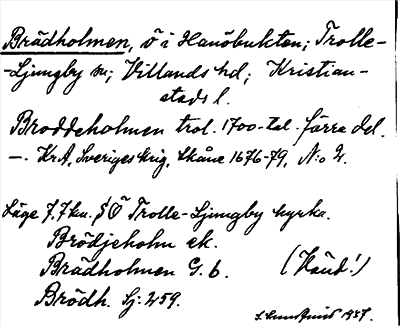 Brädholmen, ö i Hanöbukten; Trolle-
-Ljungby sn; Villands hd; Kristian-
stads l.
Broddeholmen trol. 1700-tal. förra del.
–. KrA, Sveriges krig, Skåne 1676-79, N:o 2.
Läge 7,7 km. SÖ Trolle-Ljungby kyrka.
Brödjeholm ek.
Brädholmen G. b. (Känd!)
Brödh. Sj: 259.
1937.